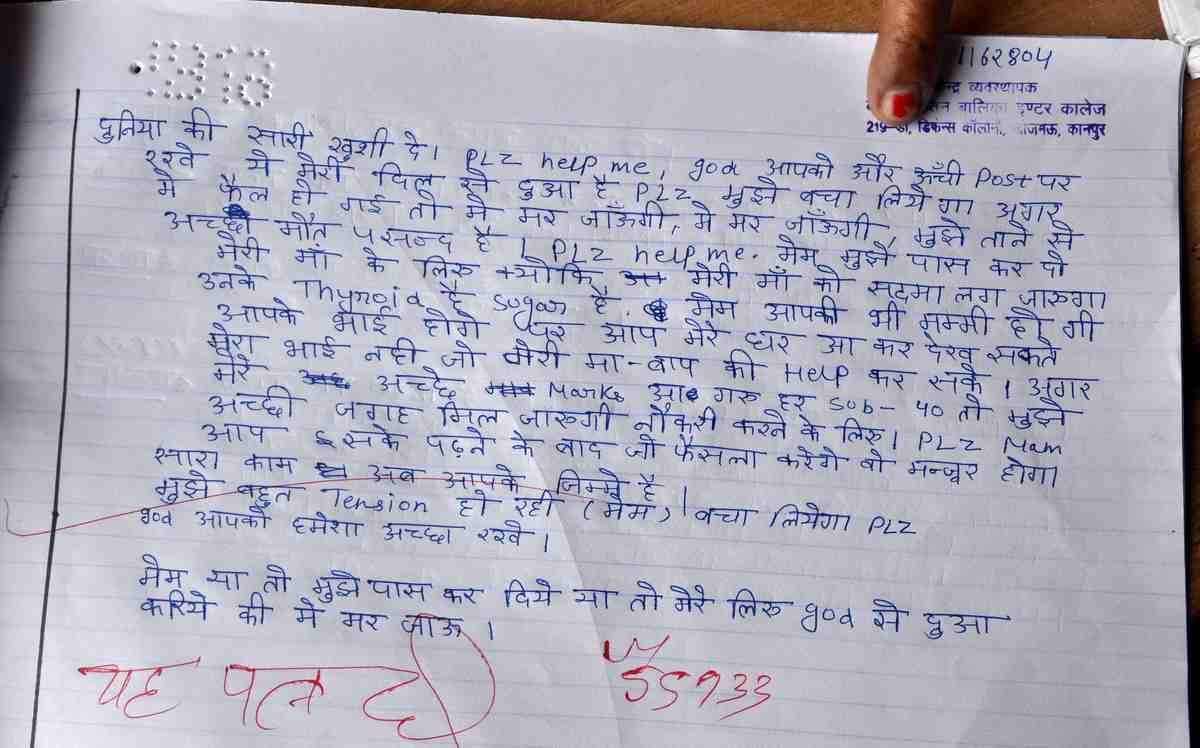 1162804
व्यवस्थापक
बालिका इण्टर कालेज
डिफेन्स कॉलोनी, जाजमऊ, कानपुर
दुनिया की सारी खुशी दे। PLZ help me, god आपको और ऊँची Post पर
रखे ये मेरी दिल से दुआ है PLZ मुझे बचा लिये गा अगर
मे फैल हो गई तो मे मर जाँऊगी, मे मर जाँऊगी मुझे ताने से
अच्छी मौत पसन्द है। PLZ help me. मेम मुझे पास कर दो
मेरी माँ के लिए क्योकि मेरी माँ को सदमा लग जाएगा
उनके Thyroid है sugar है. मेम आपकी भी मम्मी हो गी
आपके भाई होगे पर आप मेरे घर आ कर देख सकते
मेरा भाई नही जो मेरी मा-बाप की Help कर सके। अगर
मेरे अच्छे Marks आ गए हर sub-40 तो मुझे
अच्छी जगह मिल जाएगी नौकरी करने के लिए। PLZ Mam
आप इसके पढ़ने के बाद जो फैसला करेगे वो मन्जूर होगा
सारा काम अब आपके जिम्मे है।
मुझे बहुत Tension हो रही (मेम) बचा लियेगा PLZ
god आपको हमेशा अच्छा रखे।
मेम या तो मुझे पास कर दिये या तो मेरे लिए god से दुआ
करिये की मे मर जाऊ।
यह पत्र
55933